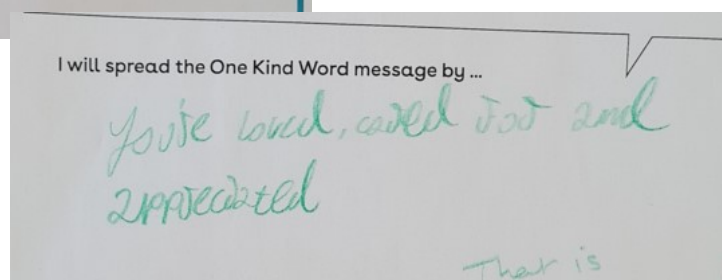 I will spread the One Kind Word message by ...
You're loved, cared for and
appreciated
That is